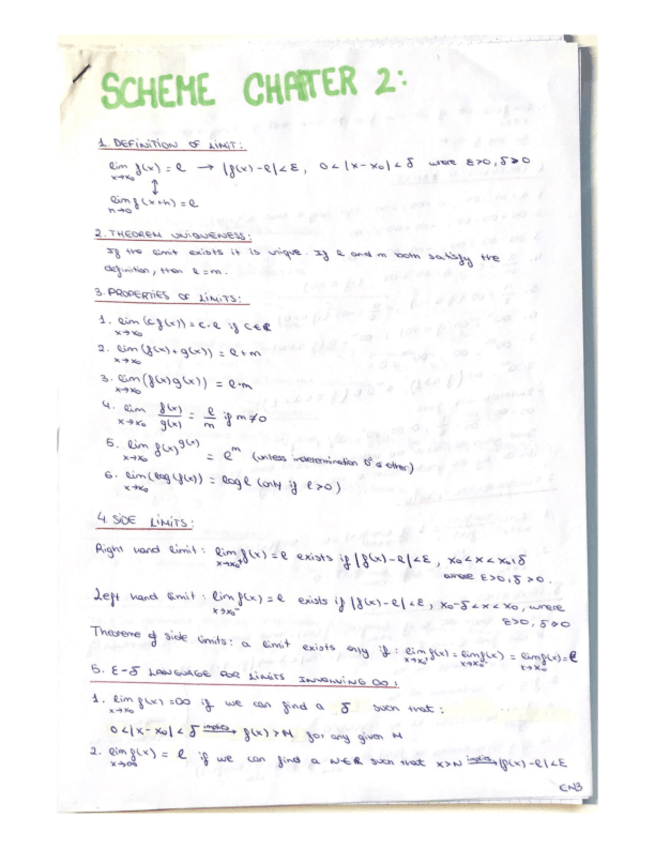 SCHEME CHAPTER 2:
1. DEFINITION OF LIMIT:
lim x→x₀ f(x) = l → |f(x) - l| < ε, 0 < |x - x₀| < δ were ε>0, δ>0
↕
lim h→0 f(x+h) = l
2. THEOREM UNIQUENESS:
If the limit exists it is unique. If l and m both satisfy the
definition, then l = m.
3. PROPERTIES OF LIMITS:
1. lim x→x₀ (c f(x)) = c·l if c∈R
2. lim x→x₀ (f(x)+g(x)) = l+m
3. lim x→x₀ (f(x)g(x)) = l·m
4. lim x→x₀ f(x)/g(x) = l/m if m≠0
5. lim x→x₀ f(x)^g(x) = l^m (unless indetermination other)
6. lim x→x₀ (log(f(x)) = log l (only if l>0)
4. SIDE LIMITS:
Right hand limit: lim x→x₀⁺ f(x) = l exists if |f(x) - l| < ε, x₀ < x < x₀+δ
where ε>0, δ>0.
Left hand limit: lim x→x₀⁻ f(x) = l exists if |f(x) - l| < ε, x₀-δ < x < x₀, where
ε>0, δ>0
Theoreme of side limits: a limit exists only if: lim x→x₀⁺ f(x) = lim x→x₀⁻ f(x) = lim x→x₀ f(x) = l
5. ε-δ LANGUAGE FOR LIMITS INVOLVING ∞:
1. lim x→x₀ f(x) = ∞ if we can find a δ such that:
0 < |x - x₀| < δ implies→ f(x) > M for any given M
2. lim x→∞ f(x) = l if we can find a N∈R such that x>N implies→ |f(x) - l| < ε